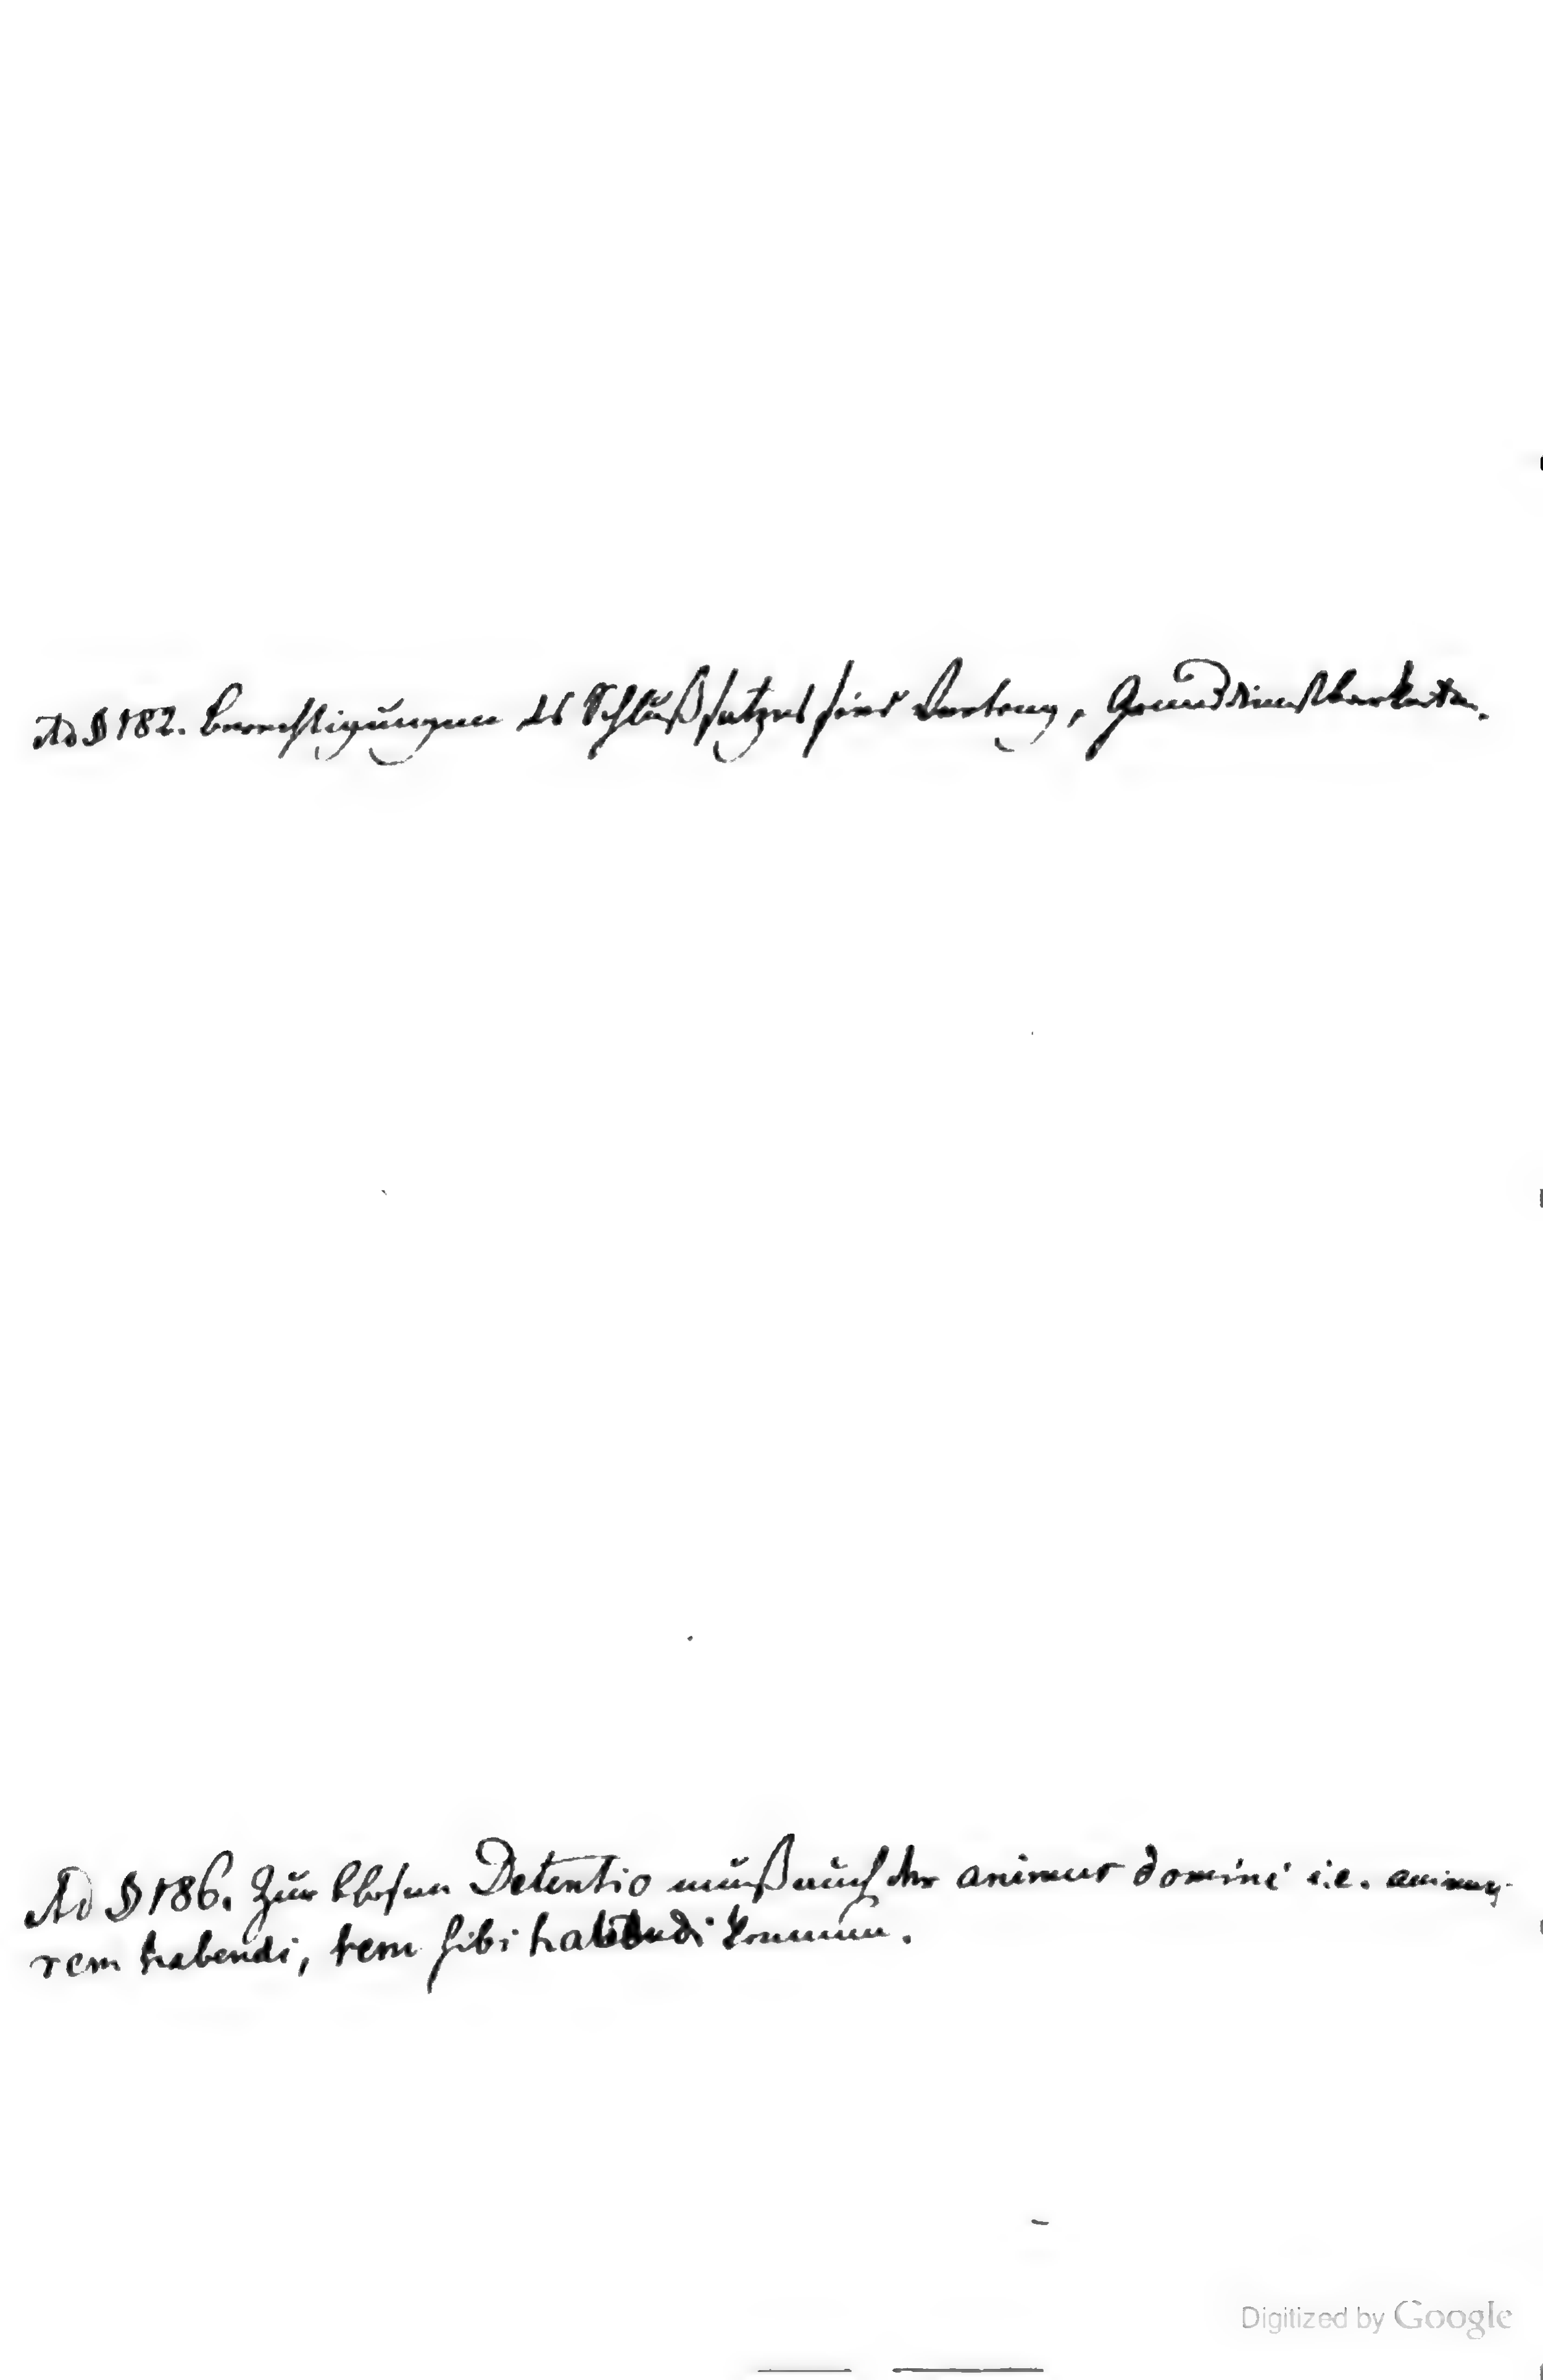 Ad § 182. Berechtigungen des Schlußsatzes sind , Grunddienstbarkeiten.
Ad § 186. Zur bloßen Detentio muß auch der animus domini i.e. animus
rem habendi, rem sibi habendi kommen.
Digitized by Google